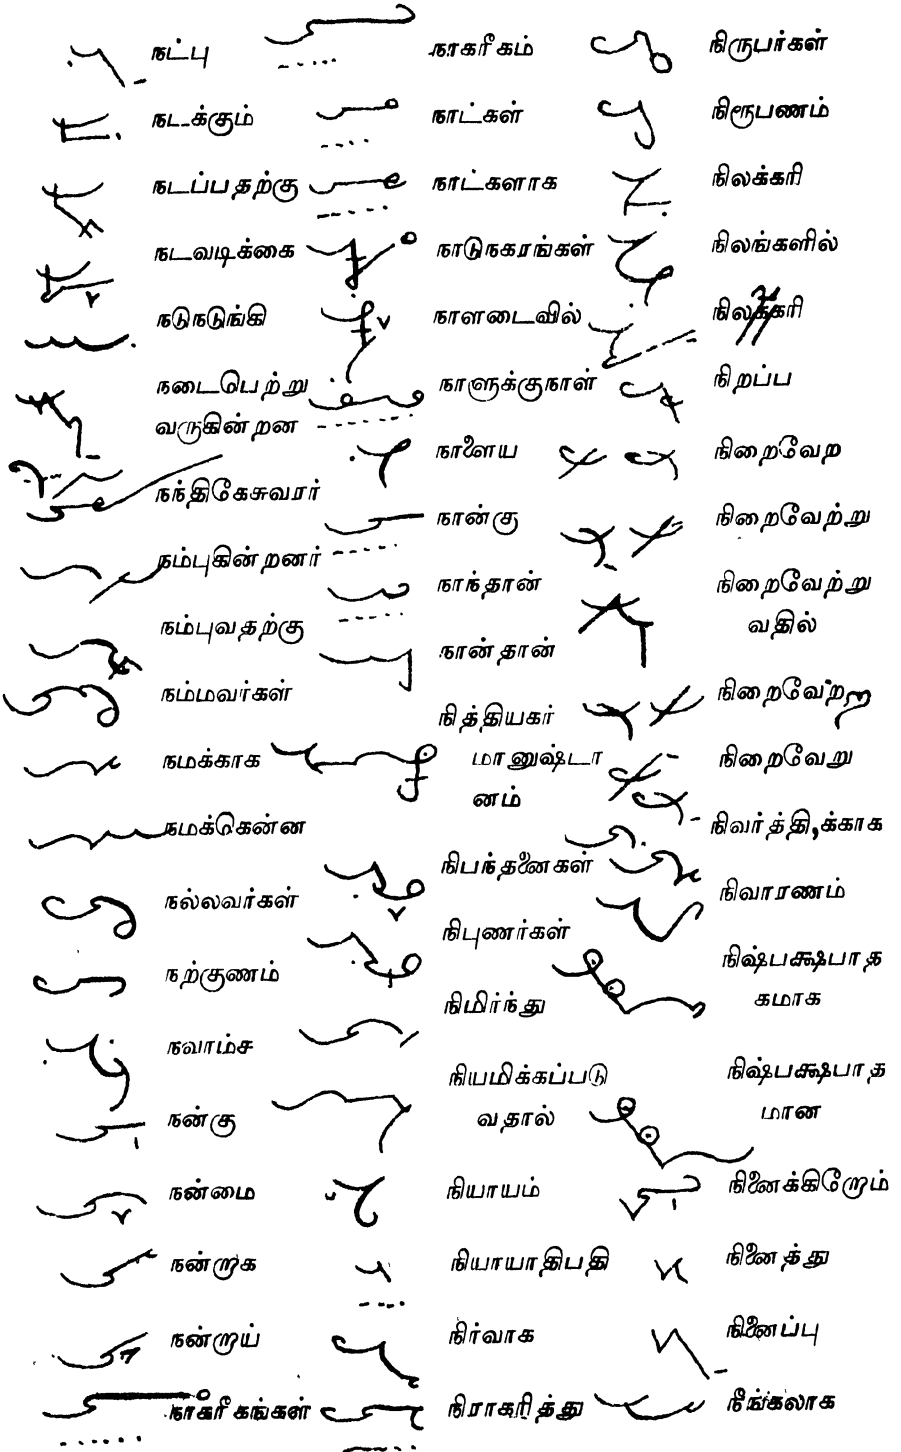 நட்பு
நடக்கும்
நடப்பதற்கு
நடவடிக்கை
நடுநடுங்கி
நடைபெற்று
வருகின்றன
நந்திகேசுவரர்
நம்புகின்றனர்
நம்புவதற்கு
நம்மவர்கள்
நமக்காக
நமக்கென்ன
நல்லவர்கள்
நற்குணம்
நவாம்ச
நன்கு
நன்மை
நன்றாக
நன்றாய்
நாகரீகங்கள்
நாகரீகம்
நாட்கள்
நாட்களாக
நாடுநகரங்கள்
நாளடைவில்
நாளுக்குநாள்
நாளைய
நான்கு
நாந்தான்
நான்தான்
நித்தியகர்
மானுஷ்டா
னம்
நிபந்தனைகள்
நிபுணர்கள்
நிமிர்ந்து
நியமிக்கப்படு
வதால்
நியாயம்
நியாயாதிபதி
நிர்வாக
நிராகரித்து
நிருபர்கள்
நிரூபணம்
நிலக்கரி
நிலங்களில்
நிலக்கரி
நிறப்ப
நிறைவேற
நிறைவேற்று
நிறைவேற்று
வதில்
நிறைவேறு
நிவர்த்தி,க்காக
நிவாரணம்
நிஷ்பக்ஷபாத
கமாக
நிஷ்பக்ஷபாத
மான
நினைக்கிறோம்
நினைத்து
நினைப்பு
நீங்கலாக